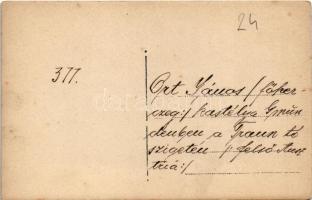 24
377.
Ort János /: főher-
czeg :/ kastélya Gmün-
denben a Traun tó
szigetén /: felső Aus-
tria :/